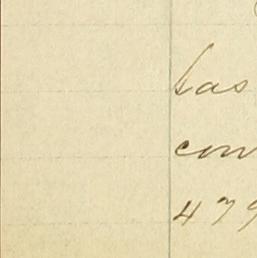 has
con
479